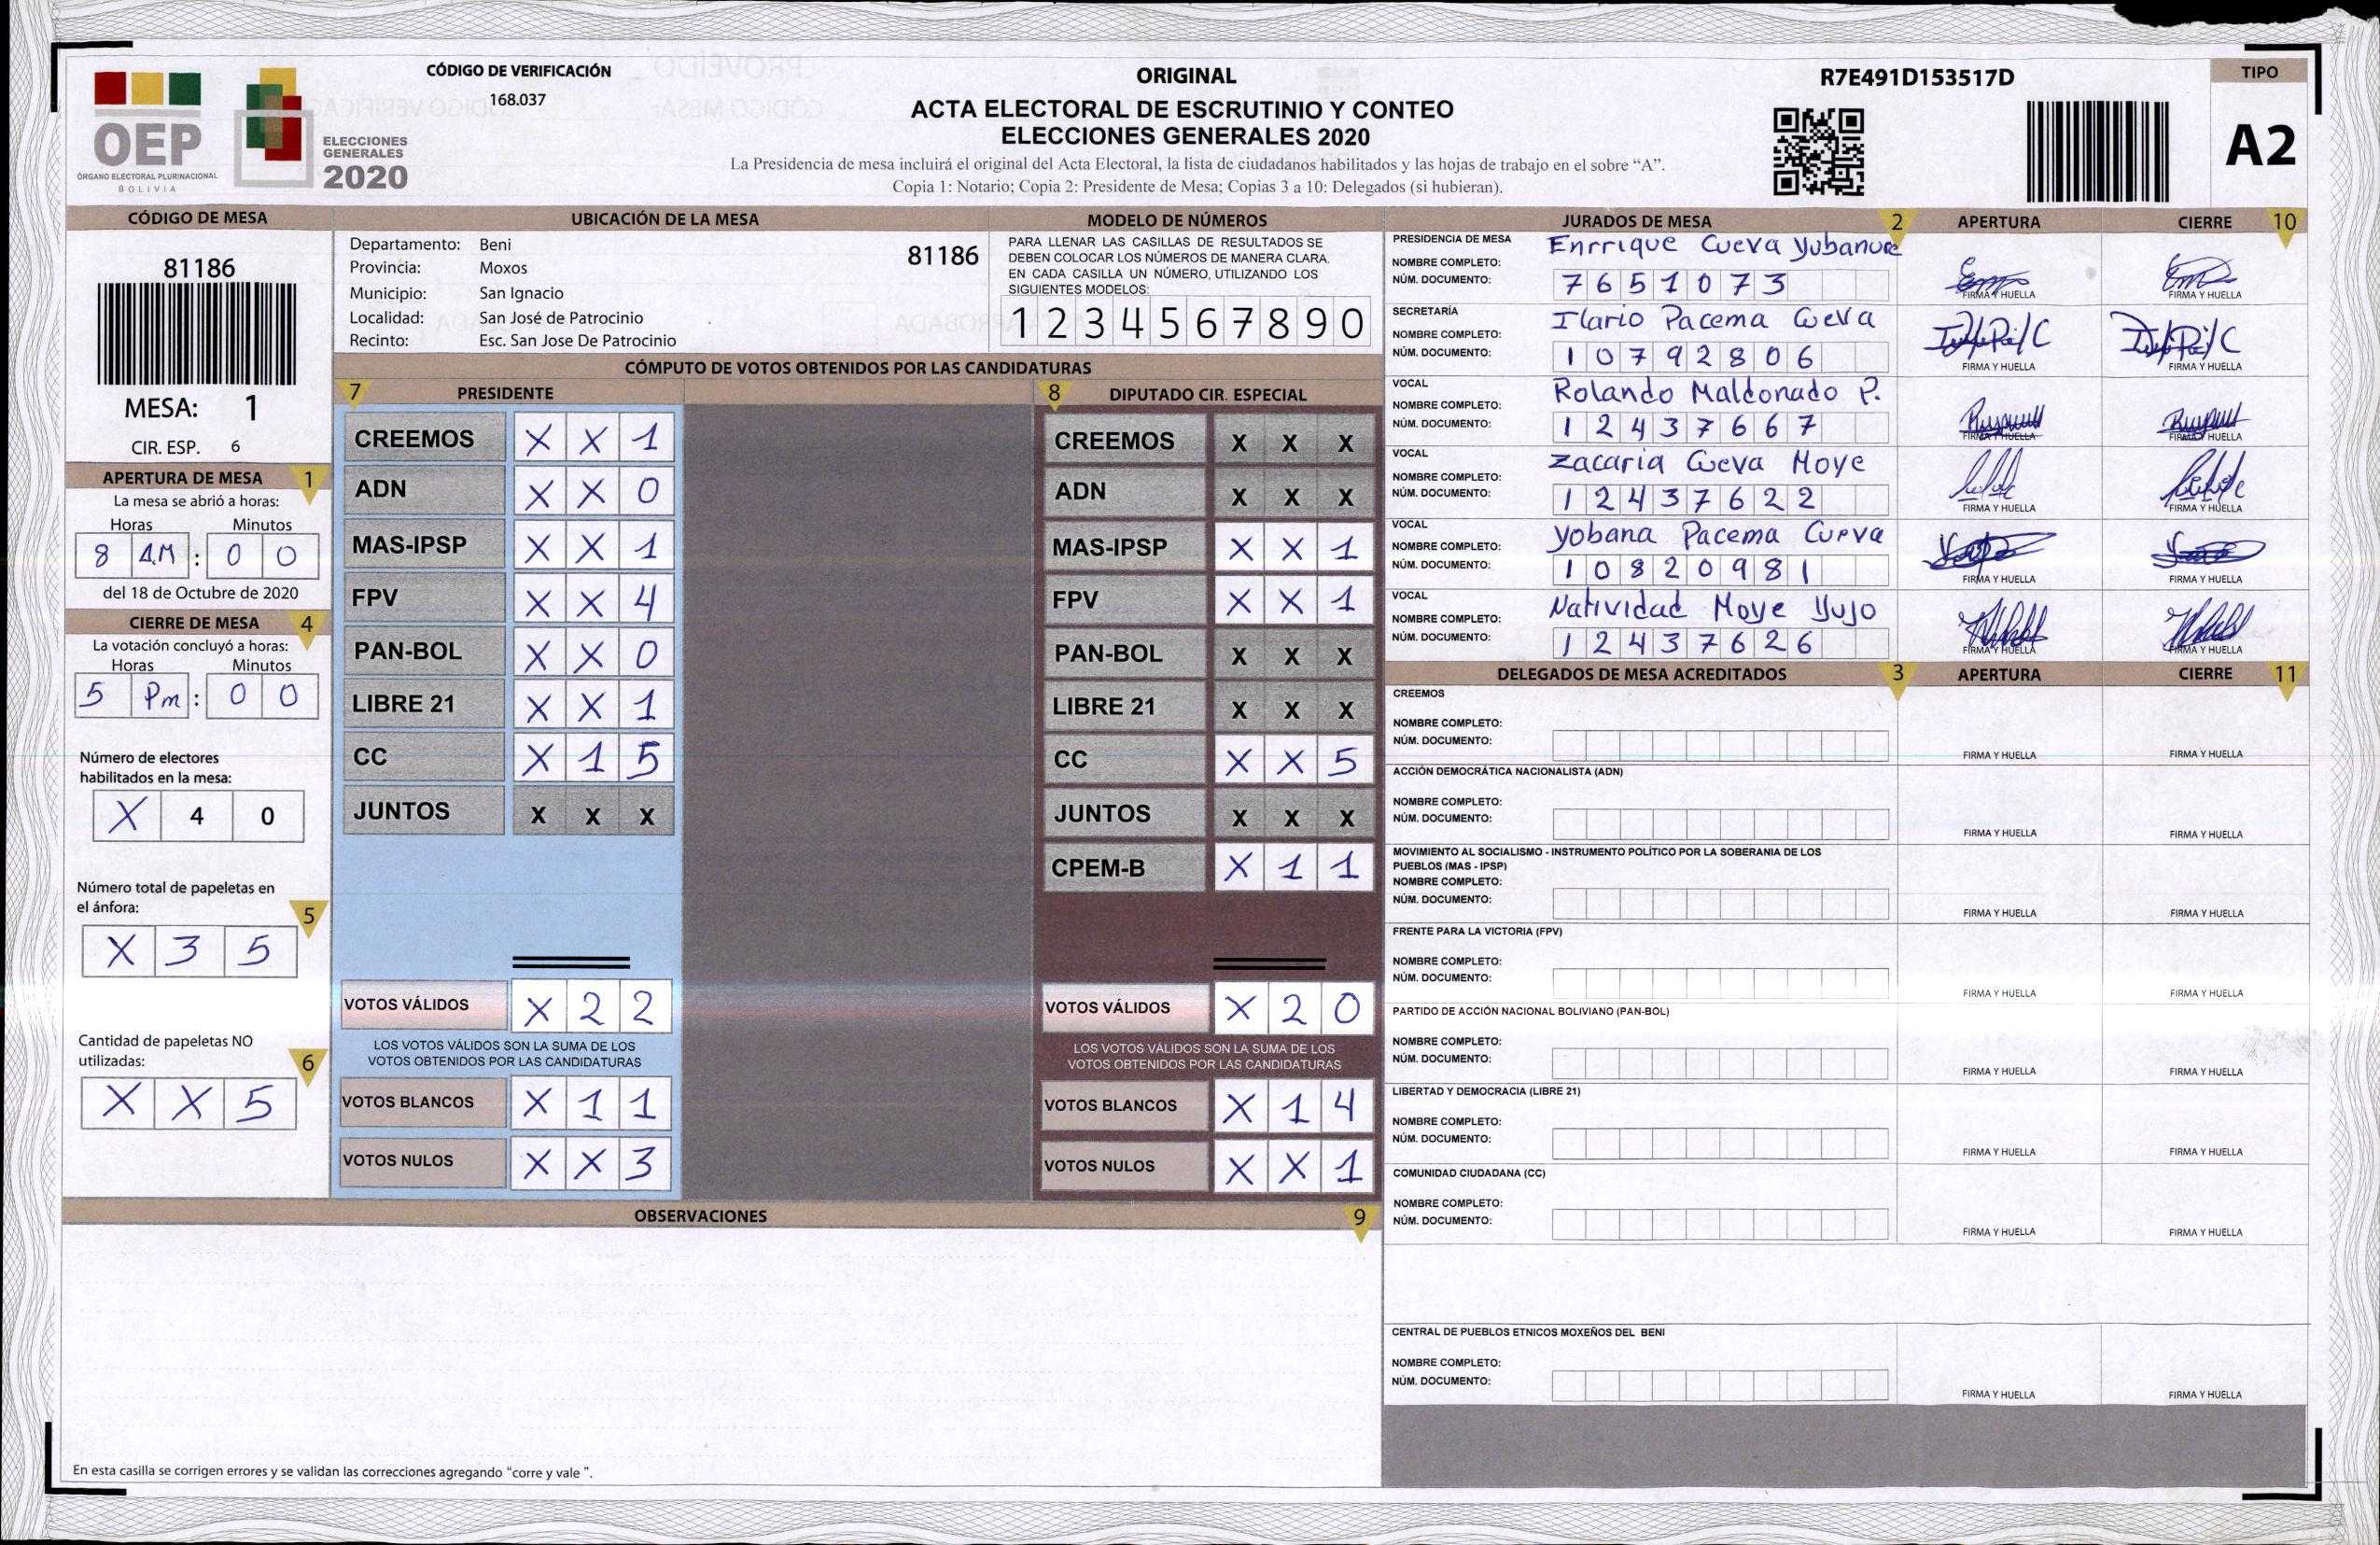 CÓDIGO DE VERIFICACIÓN
168.037
OEP
ÓRGANO ELECTORAL PLURINACIONAL
BOLIVIA
ELECCIONES
GENERALES
2020
ORIGINAL
ACTA ELECTORAL DE ESCRUTINIO Y CONTEO
ELECCIONES GENERALES 2020
La Presidencia de mesa incluirá el original del Acta Electoral, la lista de ciudadanos habilitados y las hojas de trabajo en el sobre “A”.
Copia 1: Notario; Copia 2: Presidente de Mesa; Copias 3 a 10: Delegados (si hubieran).
R7E491D153517D
TIPO
A2
CÓDIGO DE MESA
81186
MESA: 1
CIR. ESP. 6
APERTURA DE MESA 1
La mesa se abrió a horas:
Horas Minutos
8 AM : 0 0
del 18 de Octubre de 2020
CIERRE DE MESA 4
La votación concluyó a horas:
Horas Minutos
5 Pm : 0 0
Número de electores
habilitados en la mesa:
X 4 0
Número total de papeletas en
el ánfora:
5
X 3 5
Cantidad de papeletas NO
utilizadas:
6
X X 5
UBICACIÓN DE LA MESA
Departamento: Beni
81186
Provincia: Moxos
Municipio: San Ignacio
Localidad: San José de Patrocinio
Recinto: Esc. San Jose De Patrocinio
MODELO DE NÚMEROS
PARA LLENAR LAS CASILLAS DE RESULTADOS SE
DEBEN COLOCAR LOS NÚMEROS DE MANERA CLARA.
EN CADA CASILLA UN NÚMERO, UTILIZANDO LOS
SIGUIENTES MODELOS:
1 2 3 4 5 6 7 8 9 0
CÓMPUTO DE VOTOS OBTENIDOS POR LAS CANDIDATURAS
7 PRESIDENTE
CREEMOS X X 1
ADN X X 0
MAS-IPSP X X 1
FPV X X 4
PAN-BOL X X 0
LIBRE 21 X X 1
CC X 1 5
JUNTOS X X X
VOTOS VÁLIDOS X 2 2
LOS VOTOS VÁLIDOS SON LA SUMA DE LOS
VOTOS OBTENIDOS POR LAS CANDIDATURAS
VOTOS BLANCOS X 1 1
VOTOS NULOS X X 3
8 DIPUTADO CIR. ESPECIAL
CREEMOS X X X
ADN X X X
MAS-IPSP X X 1
FPV X X 1
PAN-BOL X X X
LIBRE 21 X X X
CC X X 5
JUNTOS X X X
CPEM-B X 1 1
VOTOS VÁLIDOS X 2 0
LOS VOTOS VÁLIDOS SON LA SUMA DE LOS
VOTOS OBTENIDOS POR LAS CANDIDATURAS
VOTOS BLANCOS X 1 4
VOTOS NULOS X X 1
OBSERVACIONES 9
En esta casilla se corrigen errores y se validan las correcciones agregando “corre y vale ”.
JURADOS DE MESA 2 APERTURA CIERRE 10
PRESIDENCIA DE MESA
NOMBRE COMPLETO: Enrrique Cueva Yubanure
NÚM. DOCUMENTO: 7 6 5 1 0 7 3
FIRMA Y HUELLA FIRMA Y HUELLA
SECRETARÍA
NOMBRE COMPLETO: Ilario Pacema Cueva
NÚM. DOCUMENTO: 1 0 7 9 2 8 0 6
FIRMA Y HUELLA FIRMA Y HUELLA
VOCAL
NOMBRE COMPLETO: Rolando Maldonado P.
NÚM. DOCUMENTO: 1 2 4 3 7 6 6 7
FIRMA Y HUELLA FIRMA Y HUELLA
VOCAL
NOMBRE COMPLETO: Zacaria Cueva Moye
NÚM. DOCUMENTO: 1 2 4 3 7 6 2 2
FIRMA Y HUELLA FIRMA Y HUELLA
VOCAL
NOMBRE COMPLETO: Yobana Pacema Cueva
NÚM. DOCUMENTO: 1 0 8 2 0 9 8 1
FIRMA Y HUELLA FIRMA Y HUELLA
VOCAL
NOMBRE COMPLETO: Natividad Moye Yujo
NÚM. DOCUMENTO: 1 2 4 3 7 6 2 6
FIRMA Y HUELLA FIRMA Y HUELLA
DELEGADOS DE MESA ACREDITADOS 3 APERTURA CIERRE 11
CREEMOS
NOMBRE COMPLETO:
NÚM. DOCUMENTO:
FIRMA Y HUELLA FIRMA Y HUELLA
ACCIÓN DEMOCRÁTICA NACIONALISTA (ADN)
NOMBRE COMPLETO:
NÚM. DOCUMENTO:
FIRMA Y HUELLA FIRMA Y HUELLA
MOVIMIENTO AL SOCIALISMO - INSTRUMENTO POLÍTICO POR LA SOBERANIA DE LOS
PUEBLOS (MAS - IPSP)
NOMBRE COMPLETO:
NÚM. DOCUMENTO:
FIRMA Y HUELLA FIRMA Y HUELLA
FRENTE PARA LA VICTORIA (FPV)
NOMBRE COMPLETO:
NÚM. DOCUMENTO:
FIRMA Y HUELLA FIRMA Y HUELLA
PARTIDO DE ACCIÓN NACIONAL BOLIVIANO (PAN-BOL)
NOMBRE COMPLETO:
NÚM. DOCUMENTO:
FIRMA Y HUELLA FIRMA Y HUELLA
LIBERTAD Y DEMOCRACIA (LIBRE 21)
NOMBRE COMPLETO:
NÚM. DOCUMENTO:
FIRMA Y HUELLA FIRMA Y HUELLA
COMUNIDAD CIUDADANA (CC)
NOMBRE COMPLETO:
NÚM. DOCUMENTO:
FIRMA Y HUELLA FIRMA Y HUELLA
CENTRAL DE PUEBLOS ETNICOS MOXEÑOS DEL BENI
NOMBRE COMPLETO:
NÚM. DOCUMENTO:
FIRMA Y HUELLA FIRMA Y HUELLA